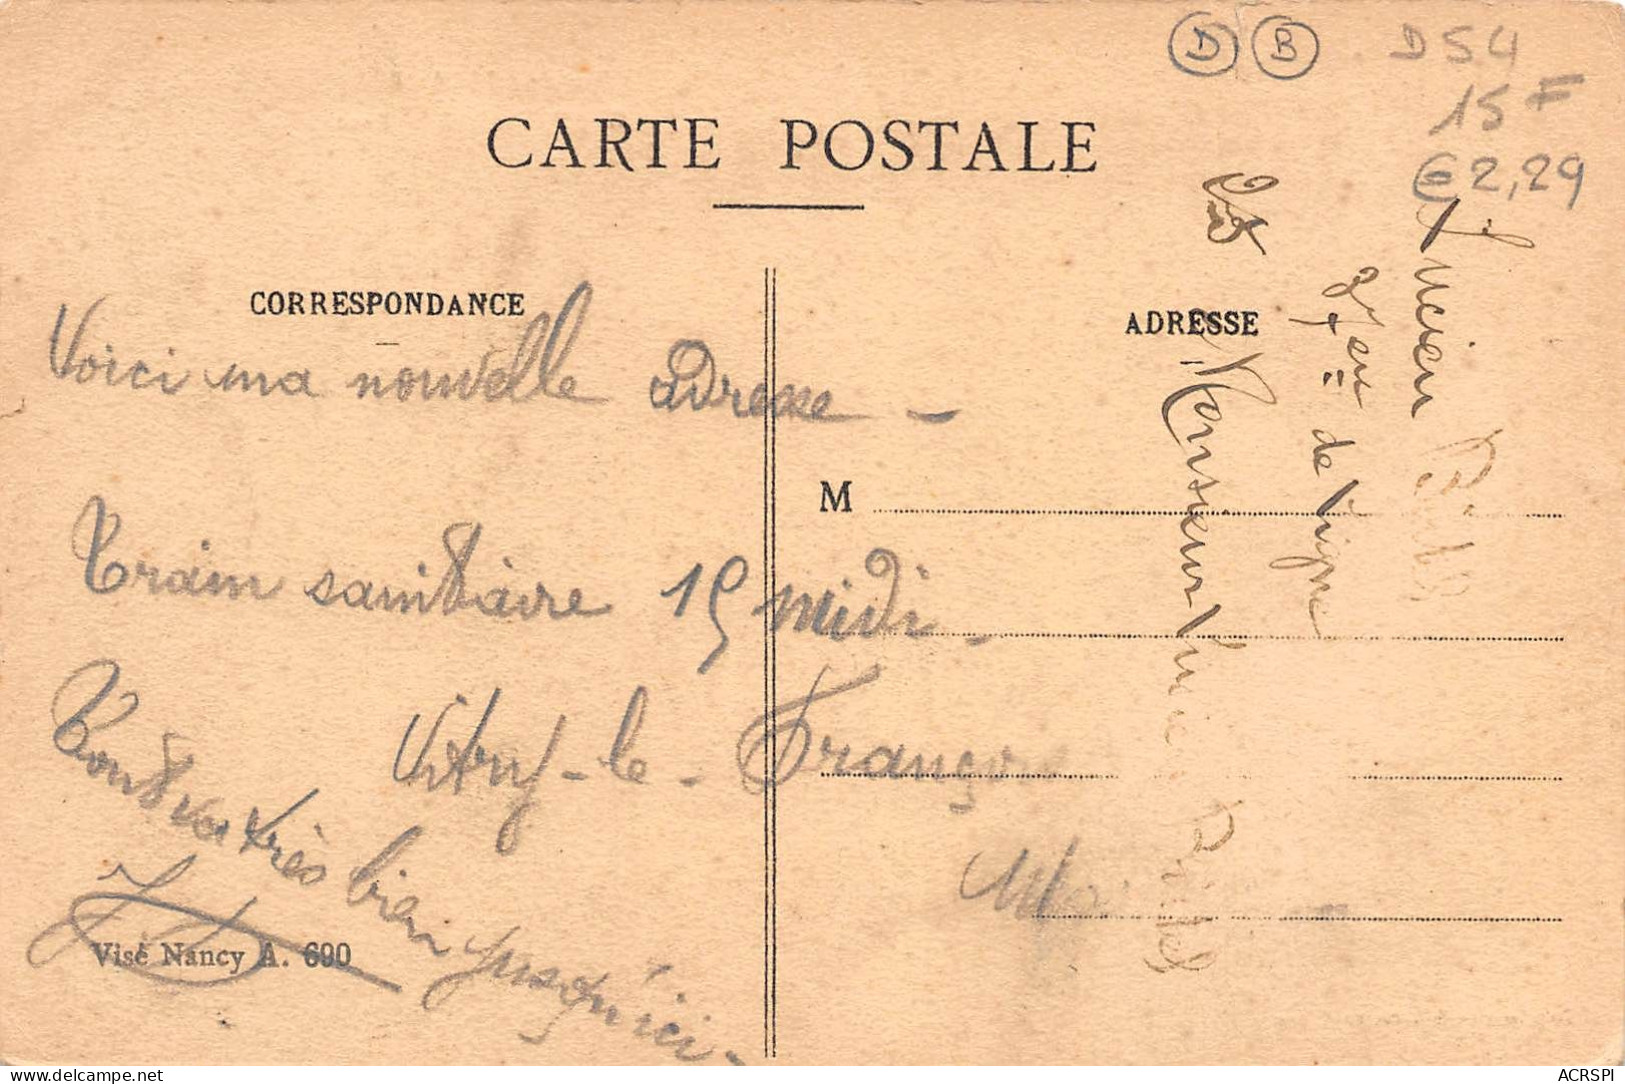 D B D54
15F
€ 2,29
CARTE POSTALE
CORRESPONDANCE
ADRESSE
Voici ma nouvelle adresse -
M
Train sanitaire 15 midi -
Vitry-le-François
Tout va très bien jusqu'ici -
Visé Nancy A. 690
Monsieur
de Vigne
Lucien
ACRSPI